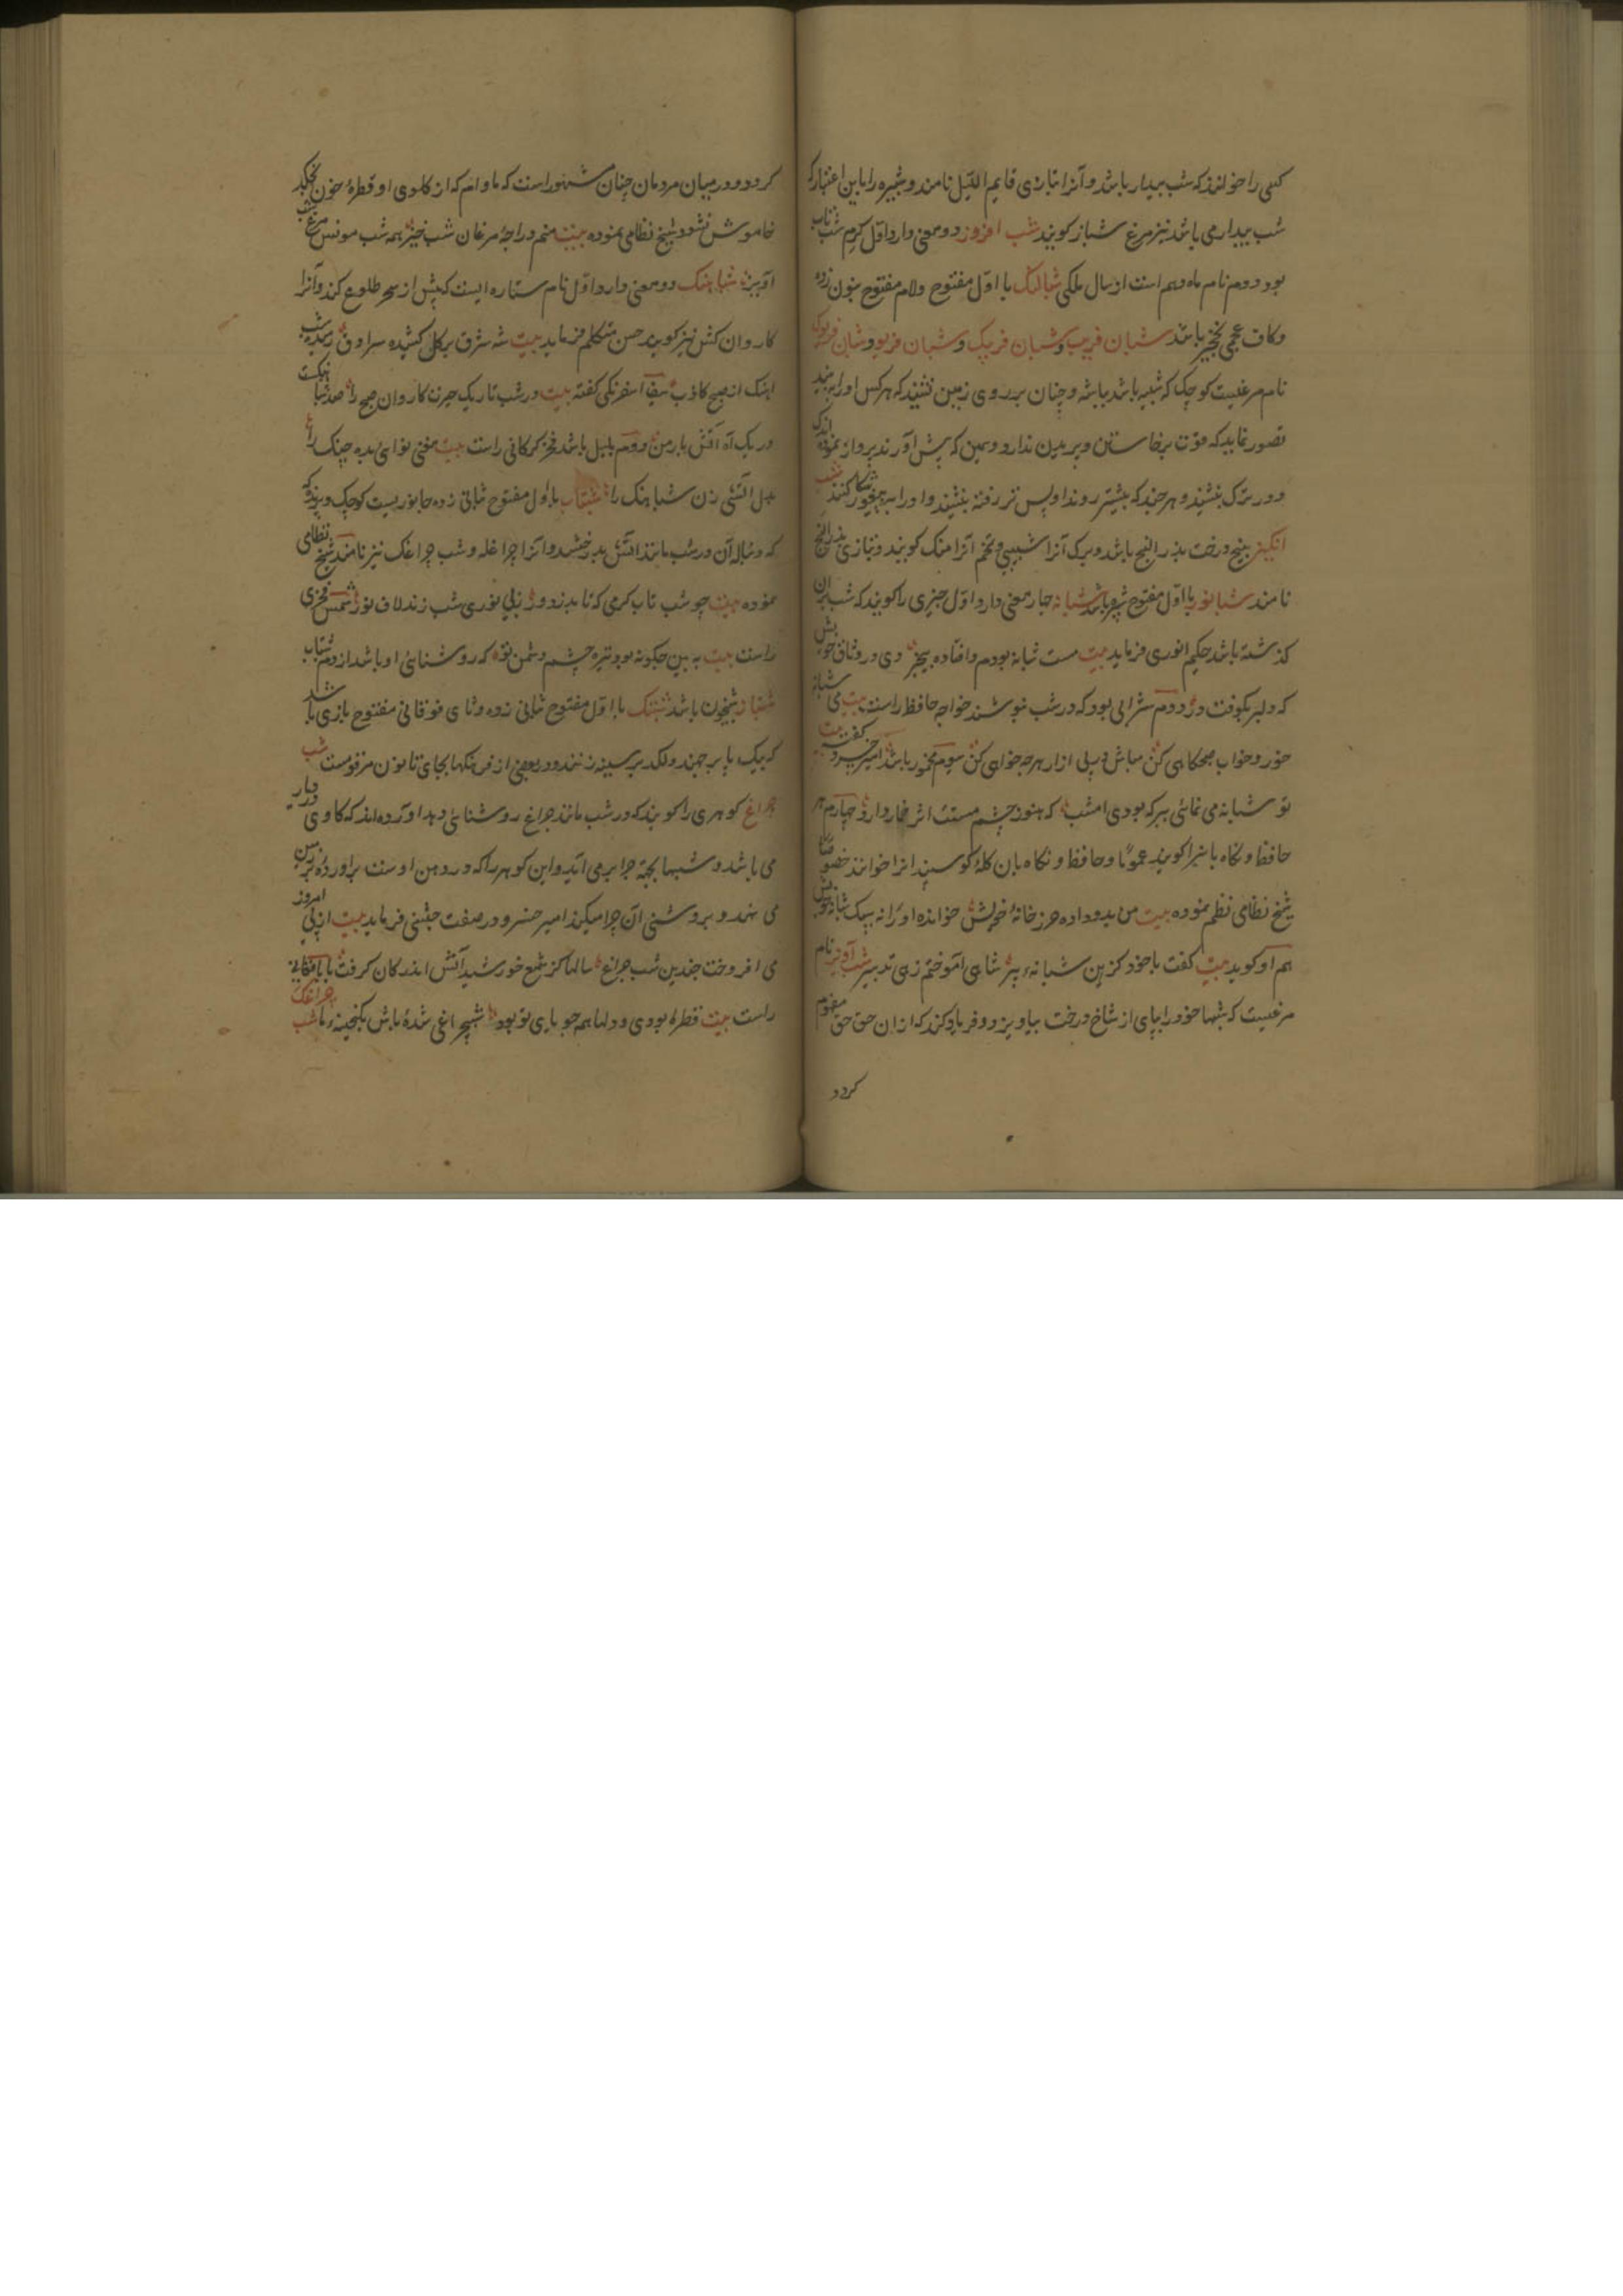 کسی را خوانند که شب بیدار باشد و آنرا بتازی قایم اللیل نامند و شبپره را باین اعتبار که
شب بیدار می باشد نیز مرغ شباز کویند شب افروز دو معنی دارد اول کرم شب تاب
بود دوم نام ماه دهم است از سال ملکی شبالنک با اول مفتوح ولام مفتوح بنون زده
وکاف عجمی نخجیر باشد شبان فریب و شبان فریبک و شبان فریو و شبان فریوک
نام مرغیست کوچک که شبیه باشد بباشه و چنان بر روی زمین نشیند که هرکس او را به بیند
تصور نماید که قوت برخاستن و پریدن ندارد و همین که پیش او رند پرواز نموده اندک
دورترک نشیند و هر چند که بیشتر روند او پس تر رفته بنشیند و او را شکار کنند شب
انکیز بیخ درخت بذر البنج باشد و برک آنرا شبیبی و تخم آنرا منک کویند و بتازی بذر البنج
نامند شبانور با اول مفتوح شپره باشد شبانه چهار معنی دارد اول چیزی را کویند که شب بران
کذشته باشد حکیم انوری فرماید بیت مست شبانه بودم و افتاده بیخبر دی در وثاق خویش
که دلبر بکوفت در دوم شرابی بود که در شب نوشند خواجه حافظ راست بیت می شبانه
خور و خواب صبحکاهی کن مباش در پی ازار هرچه خواهی کن سوم مخمور باشد امیر خسرو کفته بیت
تو شبانه می نمائی ببر که بودی امشب که هنوز چشم مستت اثر خمار دارد چهارم
حافظ و نکاه باشد را کویند عموما و حافظ و نکاه بان کله کوسپند را خوانند خصوصا
شیخ نظامی نظم نموده بیت من بدو داده حرز خانه خویش خوانده او را نه سک شبانه خویش
هم او کوید بیت کفت با خود کزین شبانه پیر شاهی آموختم زهی تدبیر شب آویز نام
مرغیست که شبها خود را بپای از شاخ درخت بیاویزد و فریاد کند که ازان حق حق مفهوم
کردد
کردد و در میان مردمان چنان مشهور است که مادام که از کلوی او قطره خون نچکد
خاموش نشود شیخ نظامی نموده بیت منم دراجه مرغان شب خیز همه شب مونس مرغ شب
آویز شباهنک دو معنی دارد اول نام ستاره ایست که پیش از سحر طلوع کند و آنرا
کاروان کش نیز کویند حسن متکلم فرماید بیت شه شرق بر کل کشیده سرادق رمیده شب
اینک از صبح کاذب سیف اسفرنکی کفته بیت در شب تاریک حیرت کاروان صبح را صد شباهنکست
در یک آه آتش بار من دوم بلبل باشد فخر کرکانی راست بیت مغنی نوای بده چنک را
بدل آتشی زن شباهنک را شبتاب با اول مفتوح ثانی زده جانوریست کوچک و پرنده
که دنبال آن در شب مانند آتش بدرخشد و آنرا چراغله و شب چراغک نیز نامند شیخ نظامی
نموده بیت چو شب تاب کرمی که تابد ز دور ز بی نوری شب زند لاف نور شمس فخری
راست بیت به بین چکونه بود تیره چشم دشمن تو که روشنایی او باشد از دم شبتاب
شبتاز شبیخون باشد شبتک با اول مفتوح ثانی زده و تای فوقانی مفتوح بازی باشد
که یک پا بر جهند و لکد بر سینه زنند و در بعضی از فرهنکها بجای تا نون مرقومست شب
چراغ کوهری را کویند که در شب مانند چراغ روشنایی دهد آورده اند که کاوی در یا
می باشد و شبها بجهة چرا برمی آید و این کوهر را که در دهن اوست براورده بر زمین
می نهد و بروشنی ان چرا میکند امیر خسرو در صفت جشنی فرماید بیت از پی امروز
می افروخت چندین شب چراغ سالها کز شمع خورشید آتش اندر کان کرفت بابا فغانی
راست بیت قطره بودی و دلها همه جویای تو بود شبچراغی شده باش بکنجینه ما شب چراغک